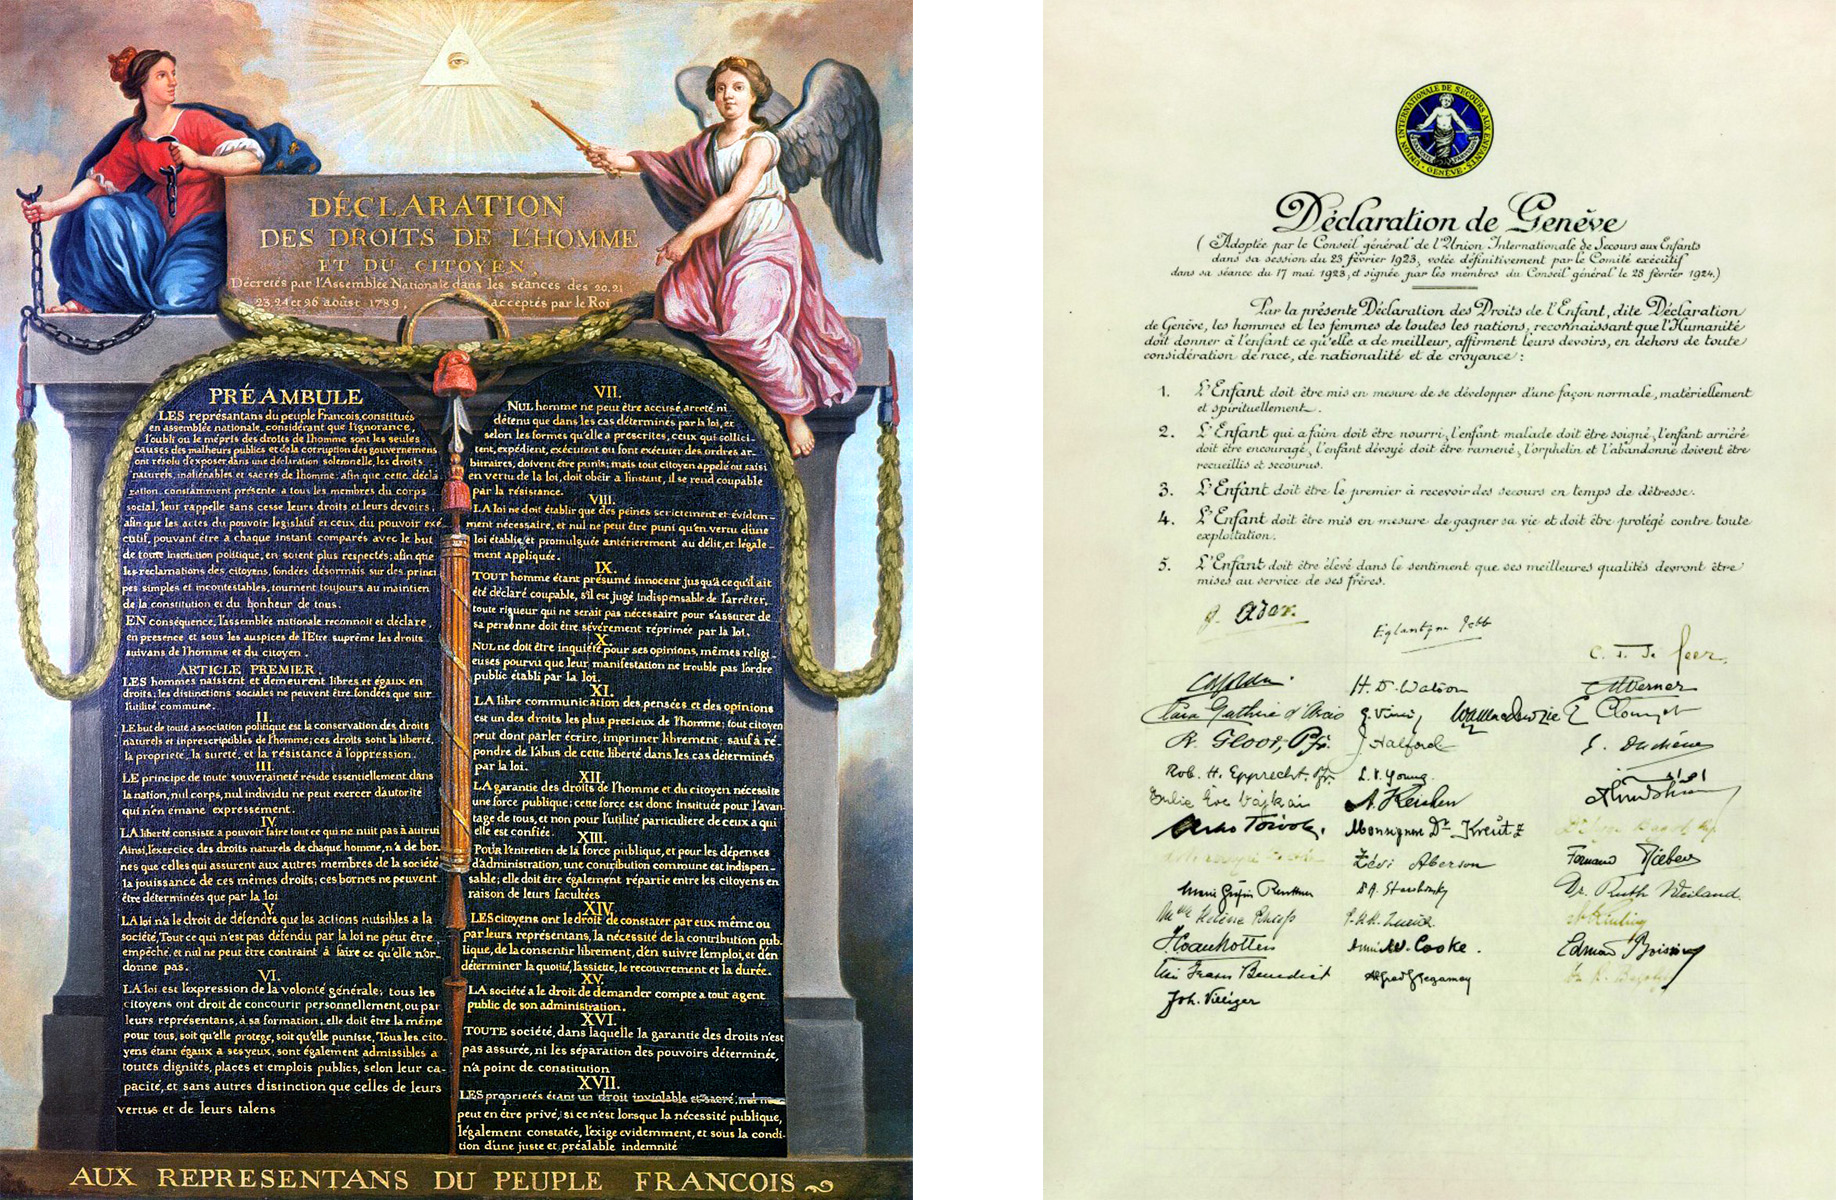 DÉCLARATION
DES DROITS DE L'HOMME
ET DU CITOYEN,
Décretés par l'Assemblée Nationale dans les séances des 20. 21
23. 24 et 26 août 1789, acceptés par le Roi
PRÉAMBULE
LES représantans du peuple François, constitués
en assemblée nationale, considérant que l'ignorance,
l'oubli ou le mépris des droits de l'homme sont les seules
causes des malheurs publics et de la corruption des gouvernemens
ont résolu d'exposer dans une déclaration solemnelle, les droits
naturels, inaliénables et sacrés de l'homme; afin que cette décla
ration, constamment présente a tous les membres du corps
social, leur rappelle sans cesse leurs droits et leurs devoirs;
afin que les actes du pouvoir legislatif et ceux du pouvoir exé
cutif, pouvant être a chaque instant comparés avec le but
de toute institution politique, en soient plus respectés; afin que
les reclamations des citoyens, fondées désormais sur des princi
pes simples et incontestables, tournent toujours au maintien
de la constitution et du bonheur de tous.
EN conséquence, l'assemblée nationale reconnoit et déclare,
en presence et sous les auspices de l'Etre suprême les droits
suivans de l'homme et du citoyen.
ARTICLE PREMIER.
LES hommes naissent et demeurent libres et égaux en
droits; les distinctions sociales ne peuvent être fondées que sur
l'utilité commune.
II.
LE but de toute association politique est la conservation des droits
naturels et inprescriptibles de l'homme; ces droits sont la liberté,
la proprieté, la sureté, et la résistance à l'oppression.
III.
LE principe de toute souveraineté réside essentiellement dans
la nation, nul corps, nul individu ne peut exercer d'autorité
qui n'en émane expressement.
IV.
LA liberté consiste a pouvoir faire tout ce qui ne nuit pas à autrui
Ainsi, l'exercice des droits naturels de chaque homme, n'a de bor
nes que celles qui assurent aux autres membres de la société
la jouissance de ces mêmes droits; ces bornes ne peuvent
être déterminées que par la loi
V.
LA loi n'a le droit de défendre que les actions nuisibles a la
société. Tout ce qui n'est pas défendu par la loi ne peut être
empêché, et nul ne peut être contraint à faire ce qu'elle n'or-
donne pas.
VI.
LA loi est l'expression de la volonté générale; tous les
citoyens ont droit de concourir personnellement, ou par
leurs représentans, à sa formation; elle doit être la même
pour tous, soit qu'elle protege, soit qu'elle punisse, Tous les cito-
yens étant égaux a ses yeux, sont également admissibles a
toutes dignités, places et emplois publics, selon leur ca-
pacité, et sans autres distinction que celles de leurs
vertus et de leurs talens
VII.
NUL homme ne peut être accusé, arreté, ni
détenu que dans les cas déterminés par la loi, et
selon les formes qu'elle a prescrites, ceux qui sollici-
tent, expédient, exécutent ou font exécuter des ordres ar-
bitraires, doivent être punis; mais tout citoyen appelé ou saisi
en vertu de la loi, doit obéir a l'instant, il se rend coupable
par la résistance.
VIII.
LA loi ne doit établir que des peines strictement et évidem-
ment nécessaire, et nul ne peut être puni qu'en vertu d'une
loi établie et promulguée antérierement au délit, et légale-
ment appliquée.
IX.
TOUT homme étant présumé innocent jusqu'a ce qu'il ait
été déclaré coupable, s'il est jugé indispensable de l'arrêter,
toute rigueur qui ne serait pas nécessaire pour s'assurer de
sa personne doit être sévèrement réprimée par la loi.
X.
NUL ne doit être inquiété pour ses opinions, mêmes religi-
euses pourvu que leur manifestation ne trouble pas l'ordre
public établi par la loi.
XI.
LA libre communication des pensées et des opinions
est un des droits les plus precieux de l'homme; tout citoyen
peut donc parler écrire, imprimer librement; sauf à ré-
pondre de l'abus de cette liberté dans les cas déterminés
par la loi.
XII.
LA garantie des droits de l'homme et du citoyen nécessite
une force publique; cette force est donc instituée pour l'avan-
tage de tous, et non pour l'utilité particuliere de ceux a qui
elle est confiée.
XIII.
POUR l'entretien de la force publique, et pour les dépenses
d'administration, une contribution commune est indispen-
sable; elle doit être également répartie entre les citoyens en
raison de leurs facultées
XIV.
LES citoyens ont le droit de constater par eux même ou
par leurs représentans, la nécessité de la contribution pub-
lique, de la consentir librement, d'en suivre l'emploi, et d'en
déterminer la quotité, l'assiette, le recouvrement et la durée.
XV.
LA société a le droit de demander compte a tout agent
public de son administration.
XVI.
TOUTE société, dans laquelle la garantie des droits n'est
pas assurée, ni les séparation des pouvoirs déterminée,
n'a point de constitution
XVII.
LES proprietés étant un droit inviolable et sacré, nul ne
peut en être privé, si ce n'est lorsque la nécessité publique,
légalement constatée, l'exige evidemment, et sous la condi-
tion d'une juste et préalable indemnité
AUX REPRESENTANS DU PEUPLE FRANCOIS
UNION INTERNATIONALE DE SECOURS AUX ENFANTS
GENÈVE
Déclaration de Genève
(Adoptée par le Conseil général de l'Union Internationale de Secours aux Enfants
dans sa session du 23 février 1923, votée définitivement par le Comité exécutif
dans sa séance du 17 mai 1923, et signée par les membres du Conseil général le 28 février 1924.)
Par la présente Déclaration des Droits de l'Enfant, dite Déclaration
de Genève, les hommes et les femmes de toutes les nations, reconnaissant que l'Humanité
doit donner à l'enfant ce qu'elle a de meilleur, affirment leurs devoirs, en dehors de toute
considération de race, de nationalité et de croyance :
1. L'Enfant doit être mis en mesure de se développer d'une façon normale, matériellement
et spirituellement.
2. L'Enfant qui a faim doit être nourri, l'enfant malade doit être soigné, l'enfant arriéré
doit être encouragé, l'enfant dévoyé doit être ramené, l'orphelin et l'abandonné doivent être
recueillis et secourus.
3. L'Enfant doit être le premier à recevoir des secours en temps de détresse.
4. L'Enfant doit être mis en mesure de gagner sa vie et doit être protégé contre toute
exploitation.
5. L'Enfant doit être élevé dans le sentiment que ses meilleures qualités devront être
mises au service de ses frères.
G. Ador.
Eglantyne Jebb
H. D. Watson
E Clouzot
R. Gloor, Pfr.
J Halford
Rob. H. Epprecht. Pfr.
L. V. Young.
Monsignore Dr Kreutz
Zévi Aberson
Dr. Ruth Weiland.
Cooke.
Joh. Villiger